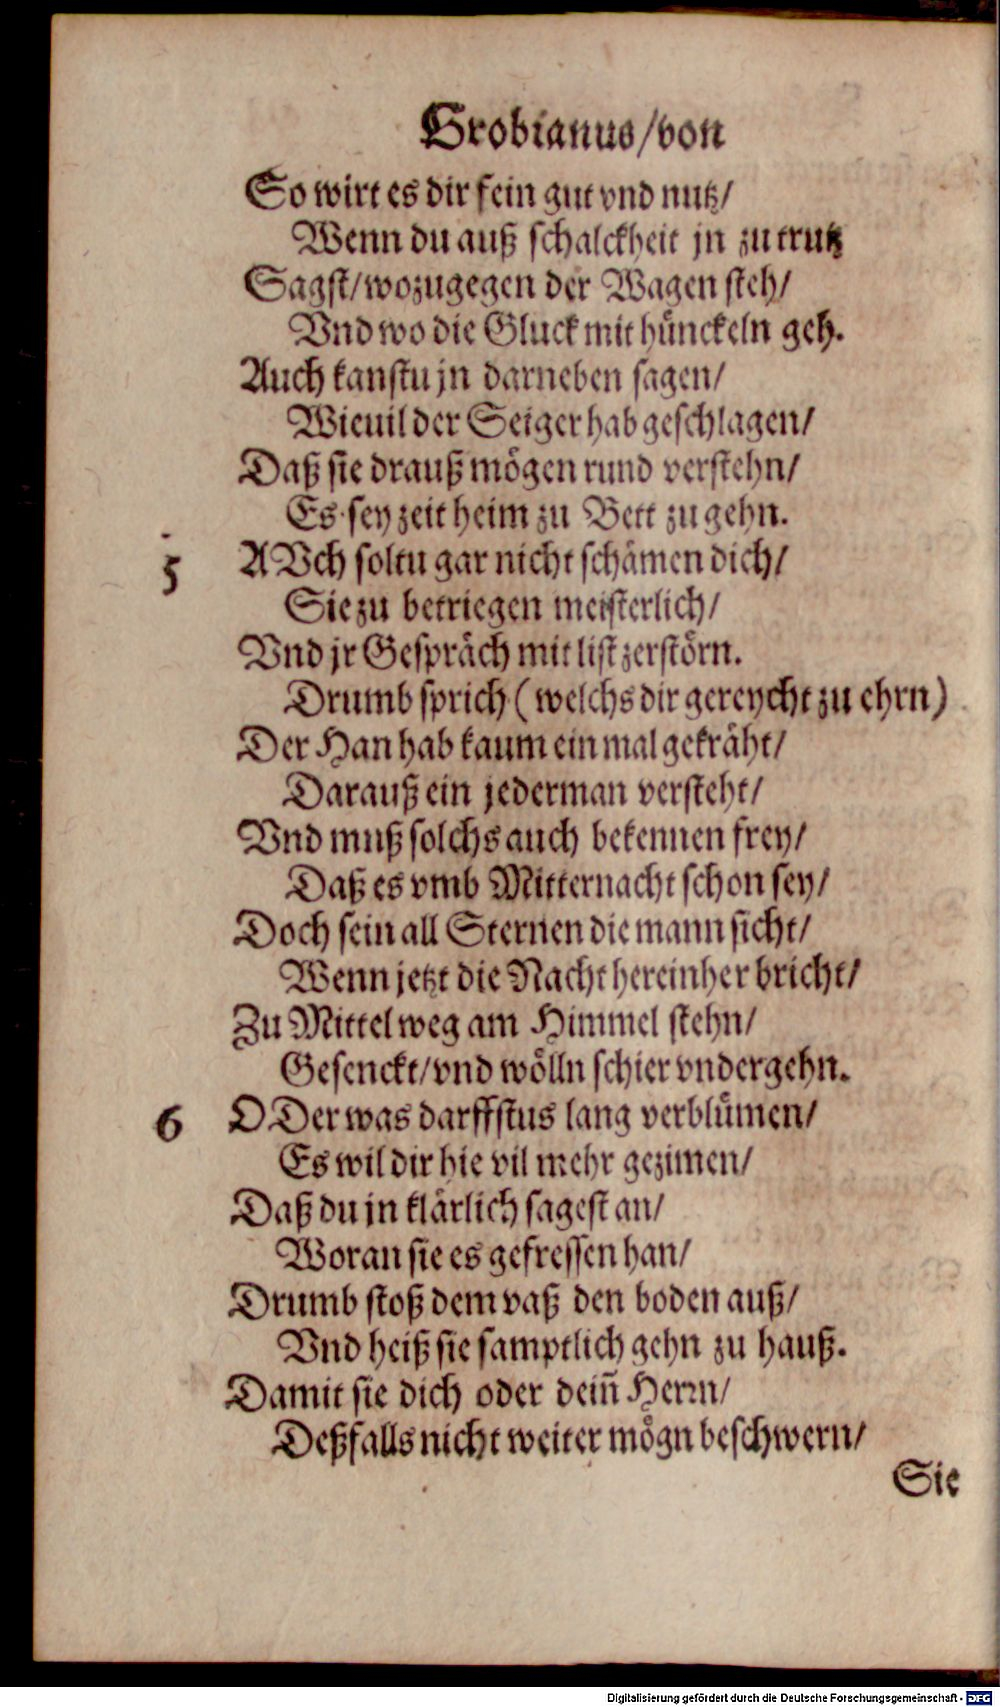 Grobianus/von
So wirt es dir fein gut vnd nutz/
Wenn du auß schalckheit jn zu trutz
Sagst/wozugegen der Wagen steh/
Vnd wo die Gluck mit hünckeln geh.
Auch kanstu jn darneben sagen/
Wieuil der Seiger hab geschlagen/
Daß sie drauß mögen rund verstehn/
Es sey zeit heim zu Bett zu gehn.
5 AVch soltu gar nicht schämen dich/
Sie zu betriegen meisterlich/
Vnd jr Gespräch mit list zerstörn.
Drumb sprich (welchs dir gereycht zu ehrn)
Der Han hab kaum ein mal gekräht/
Darauß ein jederman versteht/
Vnd muß solchs auch bekennen frey/
Daß es vmb Mitternacht schon sey/
Doch sein all Sternen die mann sicht/
Wenn jetzt die Nacht hereinher bricht/
Zu Mittel weg am Himmel stehn/
Gesenckt/vnd wölln schier vndergehn.
6 ODer was darffstus lang verblümen/
Es wil dir hie vil mehr gezimen/
Daß du jn klärlich sagest an/
Woran sie es gefressen han/
Drumb stoß dem vaß den boden auß/
Vnd heiß sie samptlich gehn zu hauß.
Damit sie dich oder deiñ Herrn/
Deßfalls nicht weiter mögn beschwern/
Sie
Digitalisierung gefördert durch die Deutsche Forschungsgemeinschaft - DFG